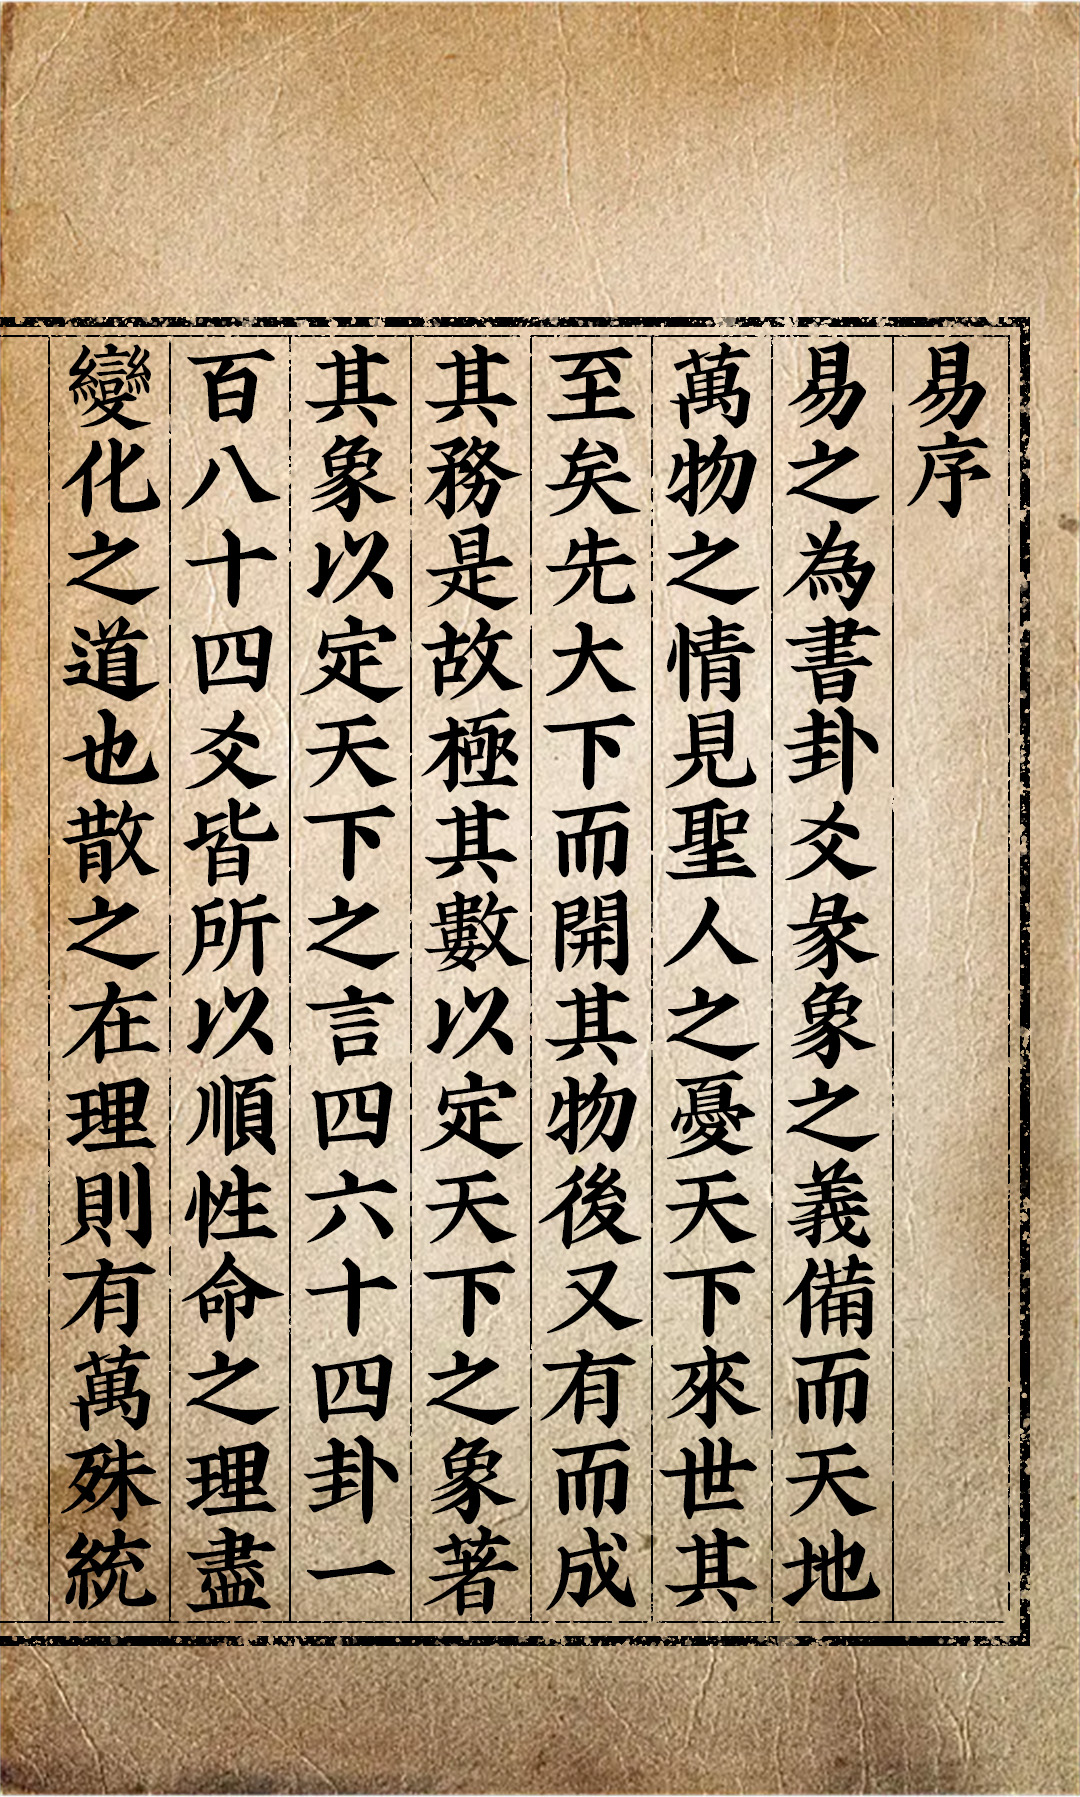 易序
易之為書卦爻彖象之義備而天地
萬物之情見聖人之憂天下來世其
至矣先大下而開其物後又有而成
其務是故極其數以定天下之象著
其象以定天下之言四六十四卦一
百八十四爻皆所以順性命之理盡
變化之道也散之在理則有萬殊統